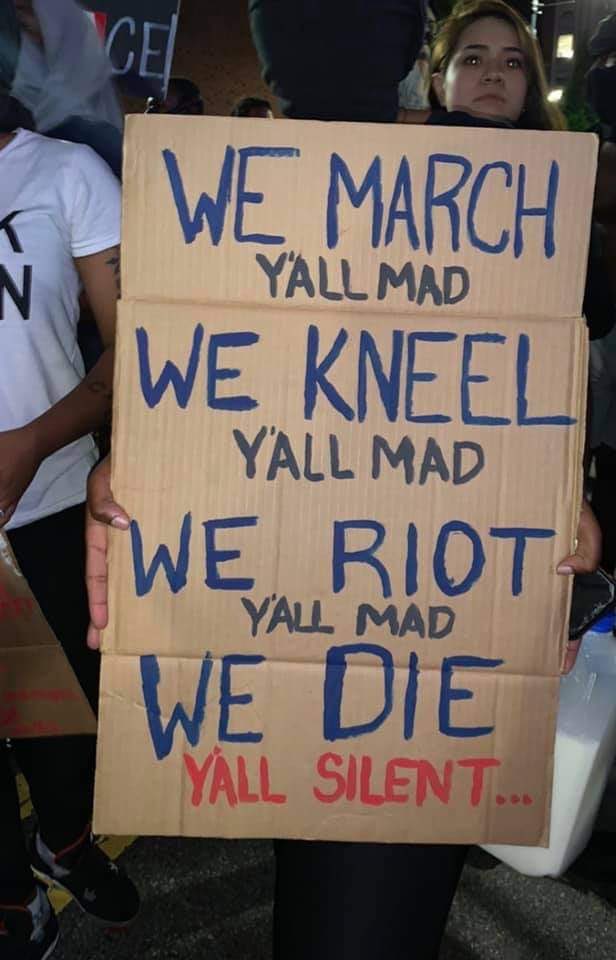 CE
WE MARCH
Y'ALL MAD
WE KNEEL
Y'ALL MAD
WE RIOT
Y'ALL MAD
WE DIE
Y'ALL SILENT...
N